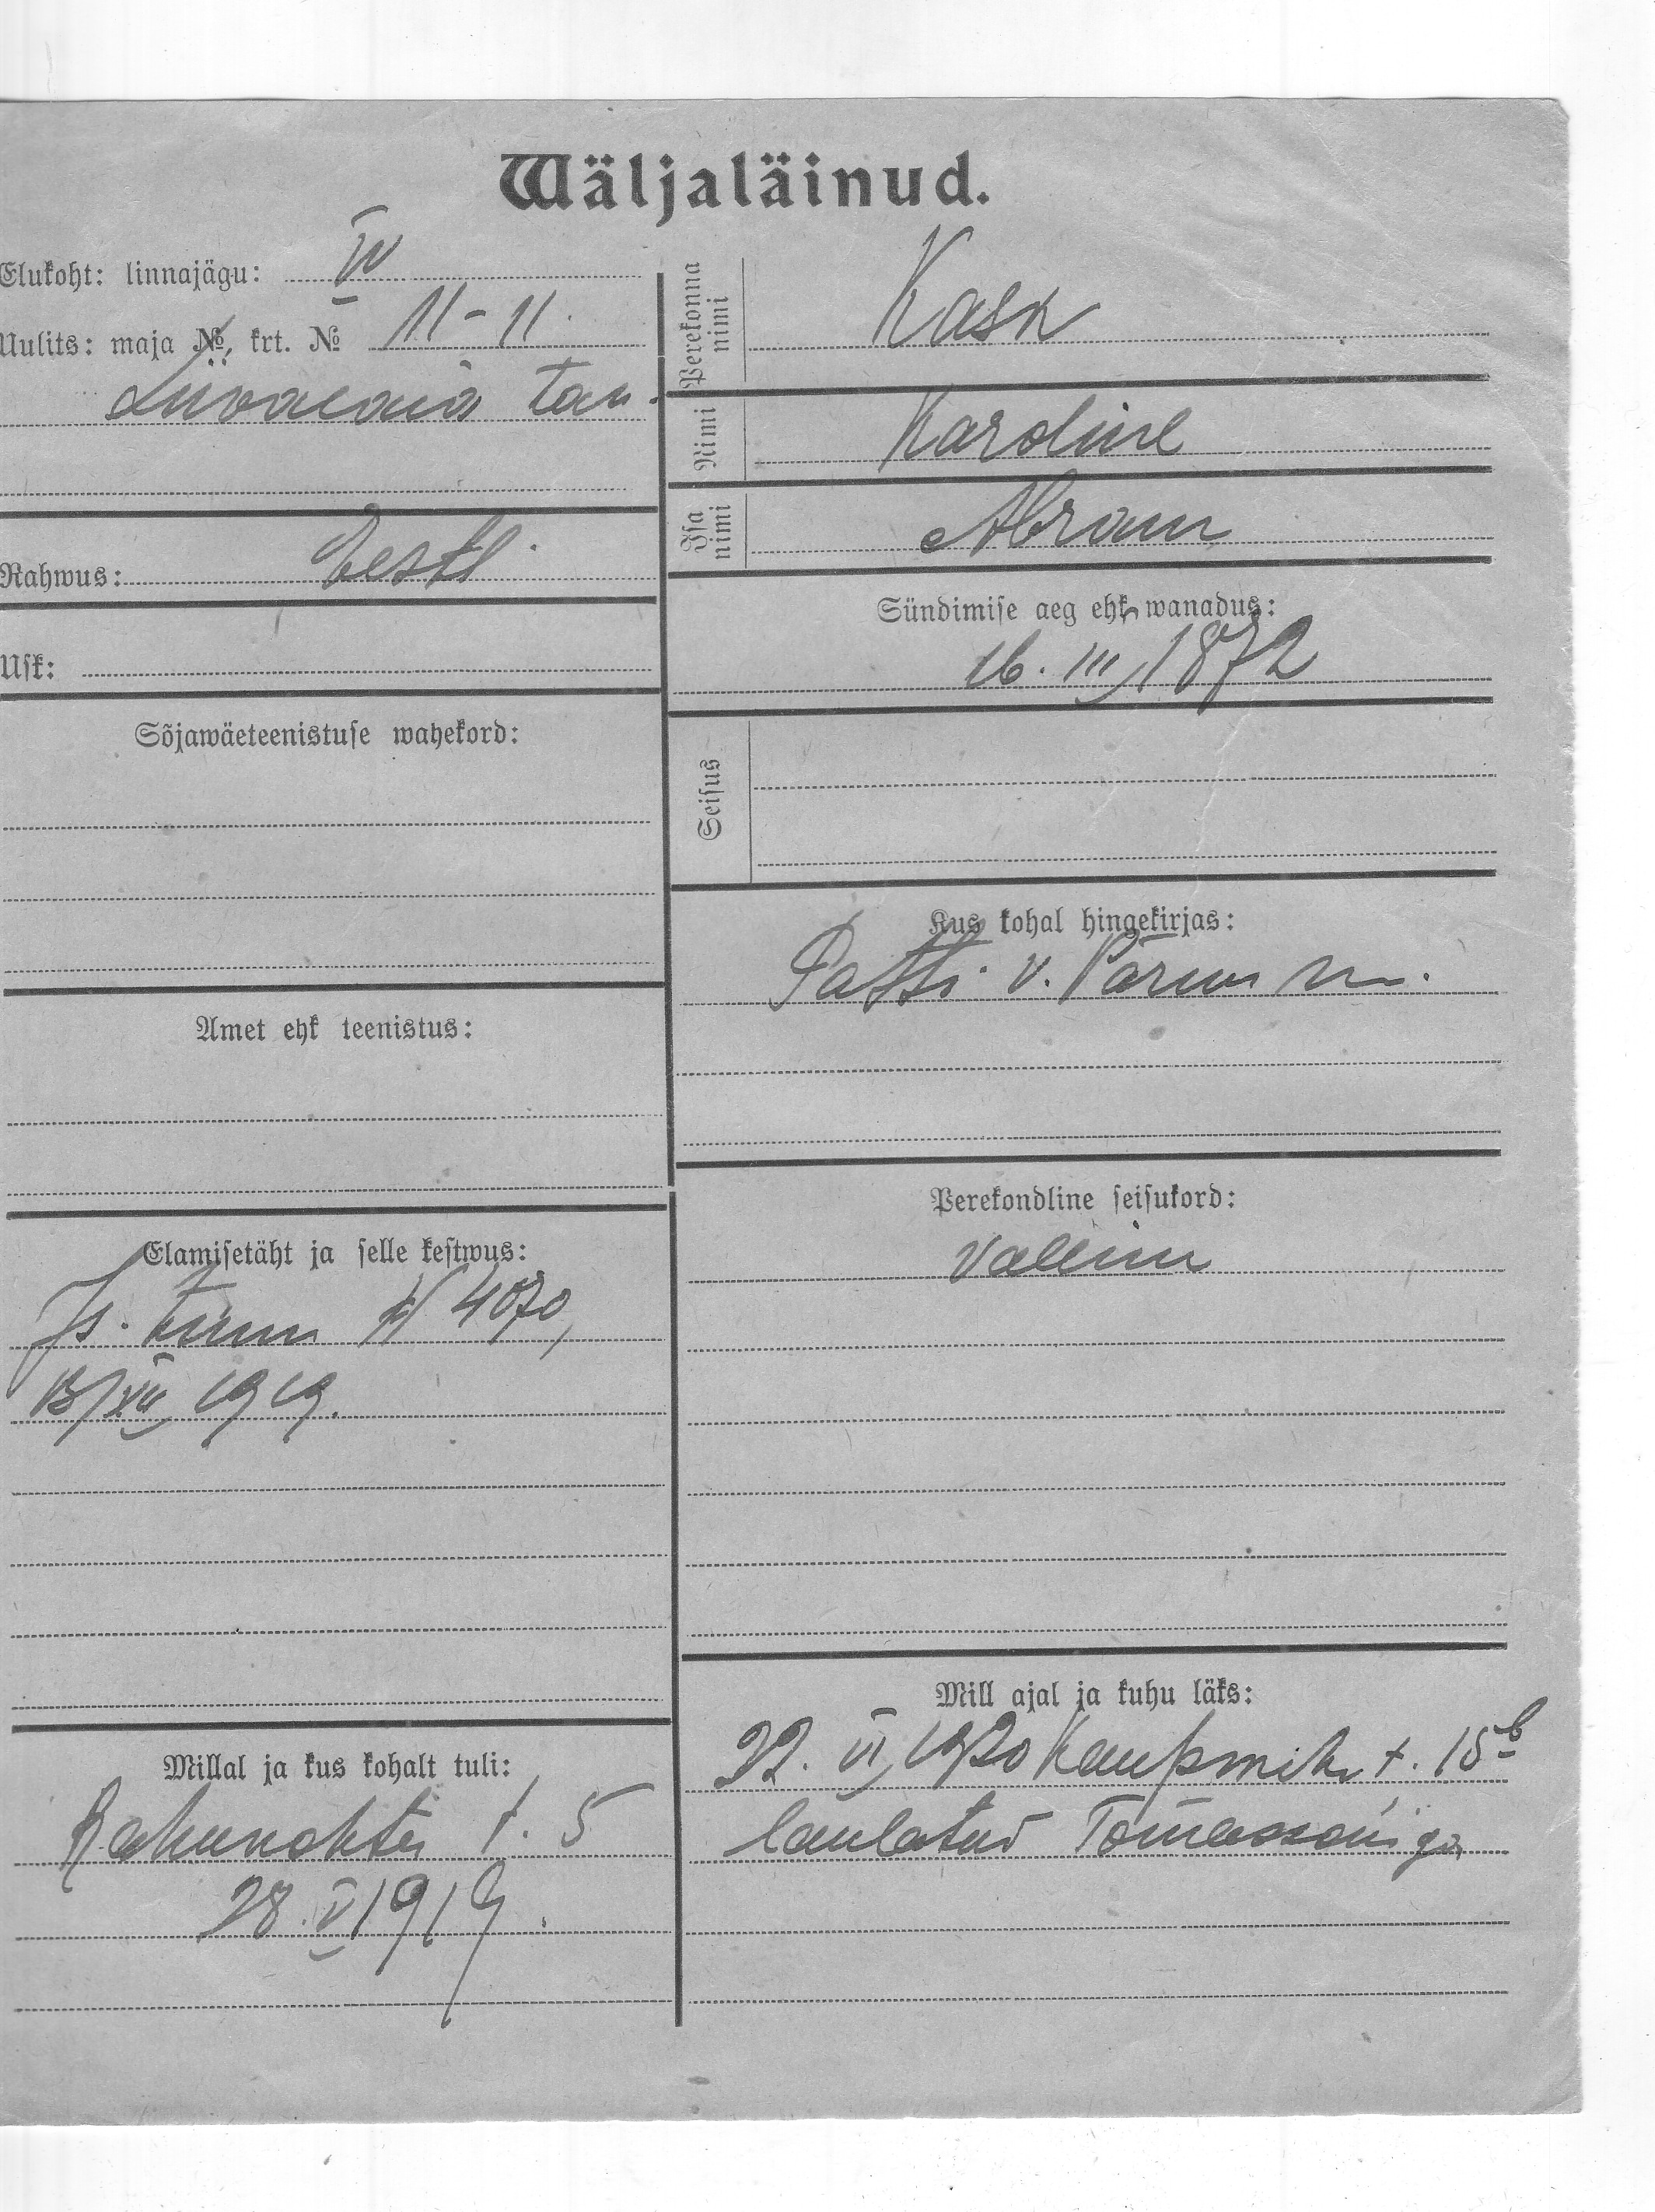 Wäljaläinud.
Elukoht: linnajägu: IV
Uulits: maja №, krt. № 11-11.
Liivalaia tän.
Rahwus: Eesti
Usk:
Sõjawäeteenistuse wahekord:
Amet ehk teenistus:
Elamisetäht ja selle kestwus:
Is. tunn № 4070,
13/XII 1919.
Millal ja kus kohalt tuli:
Rahukohtu t. 5
28.V 1919.
Perekonna nimi Kask
Nimi Karoline
Isa nimi Abram
Sündimise aeg ehk wanadus:
16. III 1872
Seisus
Kus kohal hingekirjas:
Patti v. Pärnu m.
Perekondline seisukord:
Vallim
Mill ajal ja kuhu läks:
22. VI 1920 Kaupmehe t. 15 b
laulatud Tomassoniga